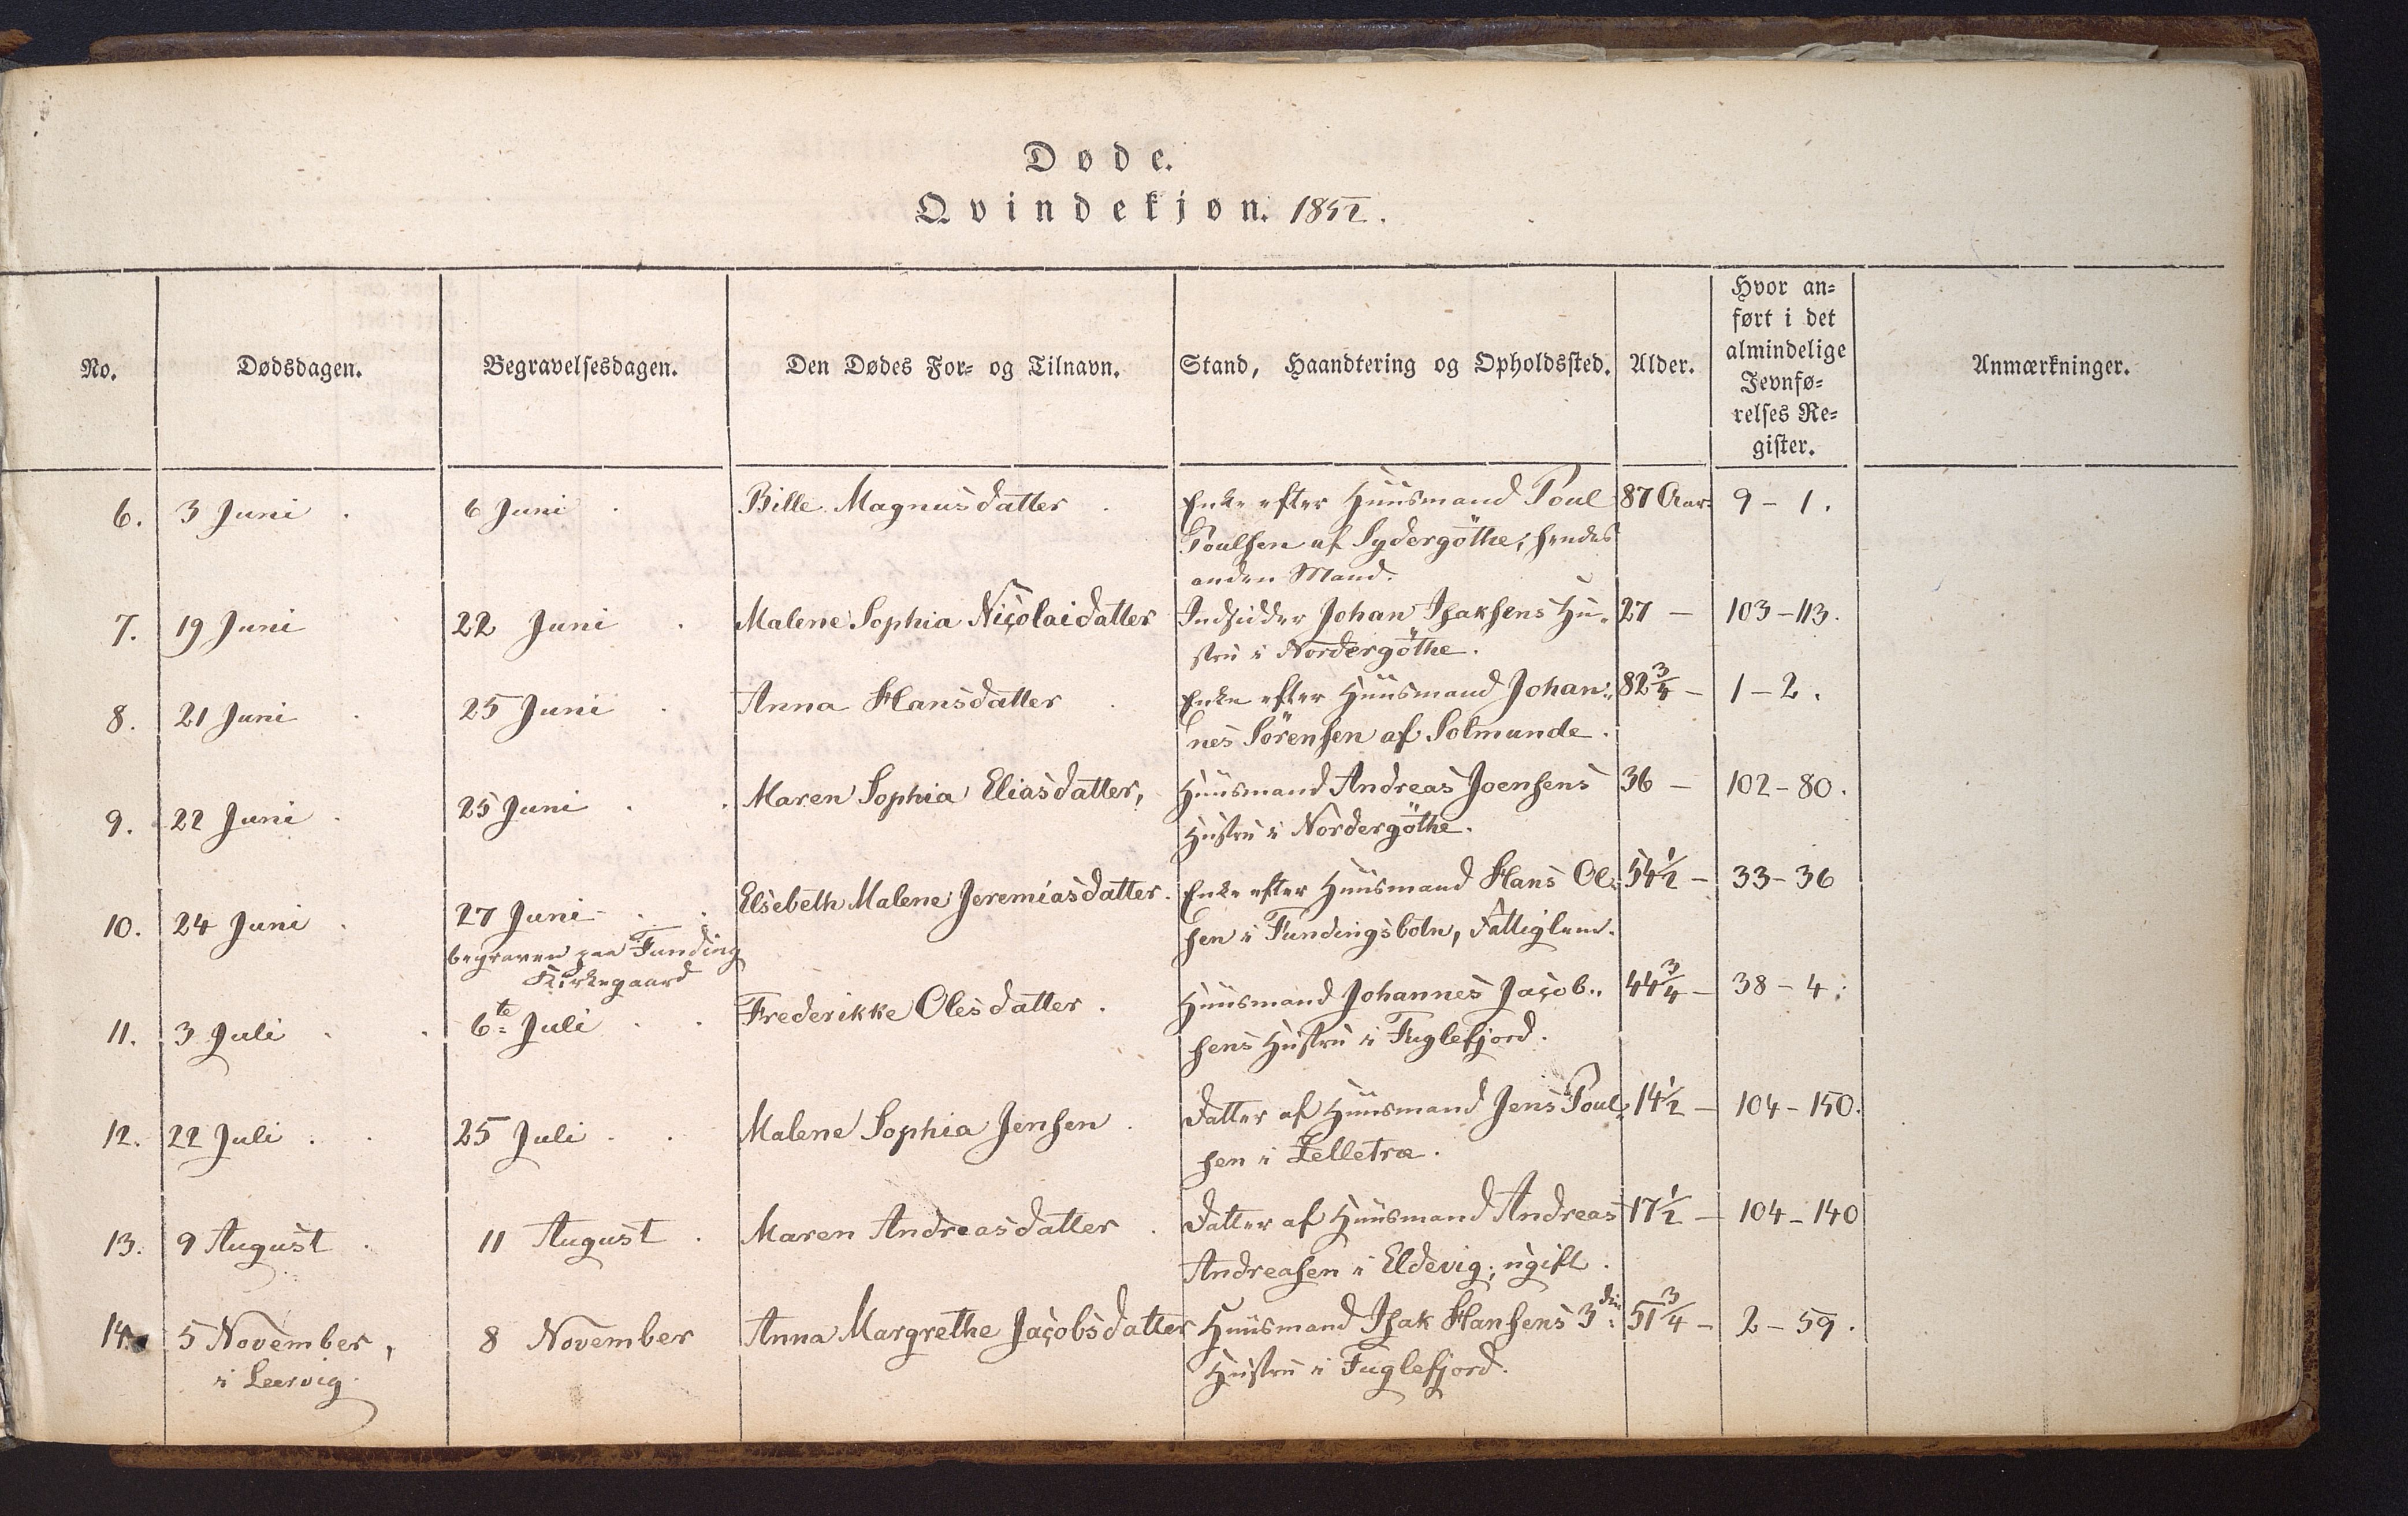 Døde.
Qvindekjøn. 1852.
No.
Dødsdagen.
Begravelsesdagen.
Den Dødes For- og Tilnavn.
Stand, Haandtering og Opholdssted.
Alder.
Hvor an-
ført i det
almindelige
Jevnfø-
relses Re-
gister.
Anmærkninger.
6. 3 Juni . 6 Juni . Bille Magnusdatter . Enke efter Huusmand Poul 87 Aar. 9 - 1.
Poulsen af Sydergöthe; hendes
anden Mand.
7. 19 Juni 22 Juni . Malene Sophia Nicolaidatter Indsidder Johan Isaksens Hu- 27 - 103-113.
stru i Nordergöthe.
8. 21 Juni . 25 Juni . Anna Hansdatter . Enke efter Huusmand Johan- 82 3/4 - 1-2.
nes Sörensen af Solmunde.
9. 22 Juni . 25 Juni . Maren Sophia Eliasdatter, Huusmand Andreas Joensens 36 - 102-80.
Hustru i Nordergöthe.
10. 24 Juni . 27 Juni . Elsebeth Malene Jeremiasdatter. Enke efter Huusmand Hans Ol- 54 1/2 - 33-36
begraven paa Funding
Kirkegaard
sen i Fundingsbotn, Fattiglem.
11. 3 Juli . 6te Juli . Frederikke Olesdatter . Huusmand Johannes Jacob- 44 3/4 - 38-4.
sens Hustru i Fuglefjord.
12. 22 Juli . 25 Juli . Malene Sophia Jensen . Datter af Huusmand Jens Poul- 14 1/2 - 104-150.
sen i Selletræ.
13. 9 August . 11 August . Maren Andreasdatter . Datter af Huusmand Andreas 17 1/2 - 104-140
Andreasen i Eldevig; ugift.
14. 5 November, 8 November Anna Margrethe Jacobsdatter Huusmand Isak Hansens 3die 51 3/4 - 2-59.
i Leervig.
Hustru i Fuglefjord.